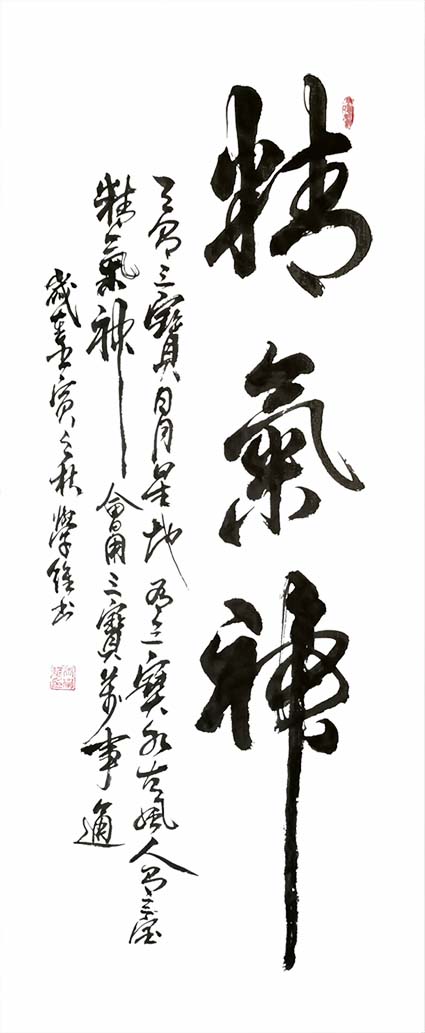 精氣神
天有三寶日月星地有三寶水古風人有三寶
精氣神會用三寶萬事通
歲在庚寅之秋學維書